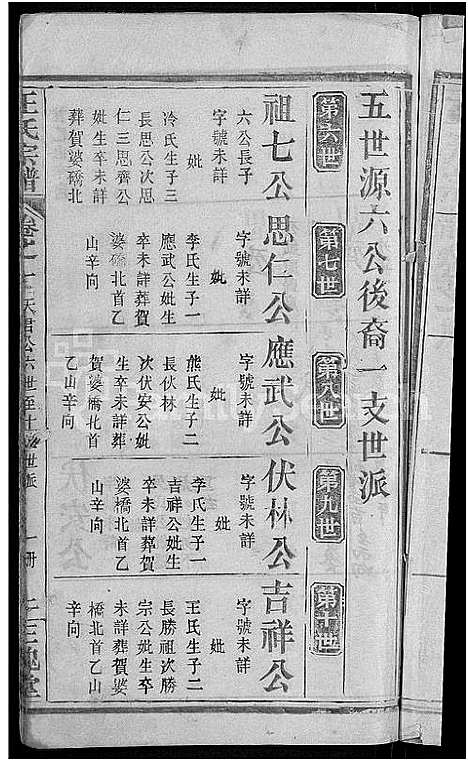 五世源六公後裔一支世派
第六世
第七世
第八世
第九世
第十世
祖七公
六公長子
字號未詳
妣
冷氏生子三
長思公次思
仁三思齊公
妣生卒未詳
葬賀婆橋北
思仁公
字號未詳
妣
李氏生子一
應武公妣生
卒未詳葬賀
婆橋北首乙
山辛向
應武公
字號未詳
妣
熊氏生子二
長伏林
次伏安公妣
生卒未詳葬
賀婆橋北首
乙山辛向
伏林公
字號未詳
妣
李氏生子一
吉祥公妣生
卒未詳葬賀
婆橋北首乙
山辛向
吉祥公
字號未詳
妣
王氏生子二
長勝祖次勝
宗公妣生卒
未詳葬賀婆
橋北首乙山
辛向
王氏宗譜
三槐堂